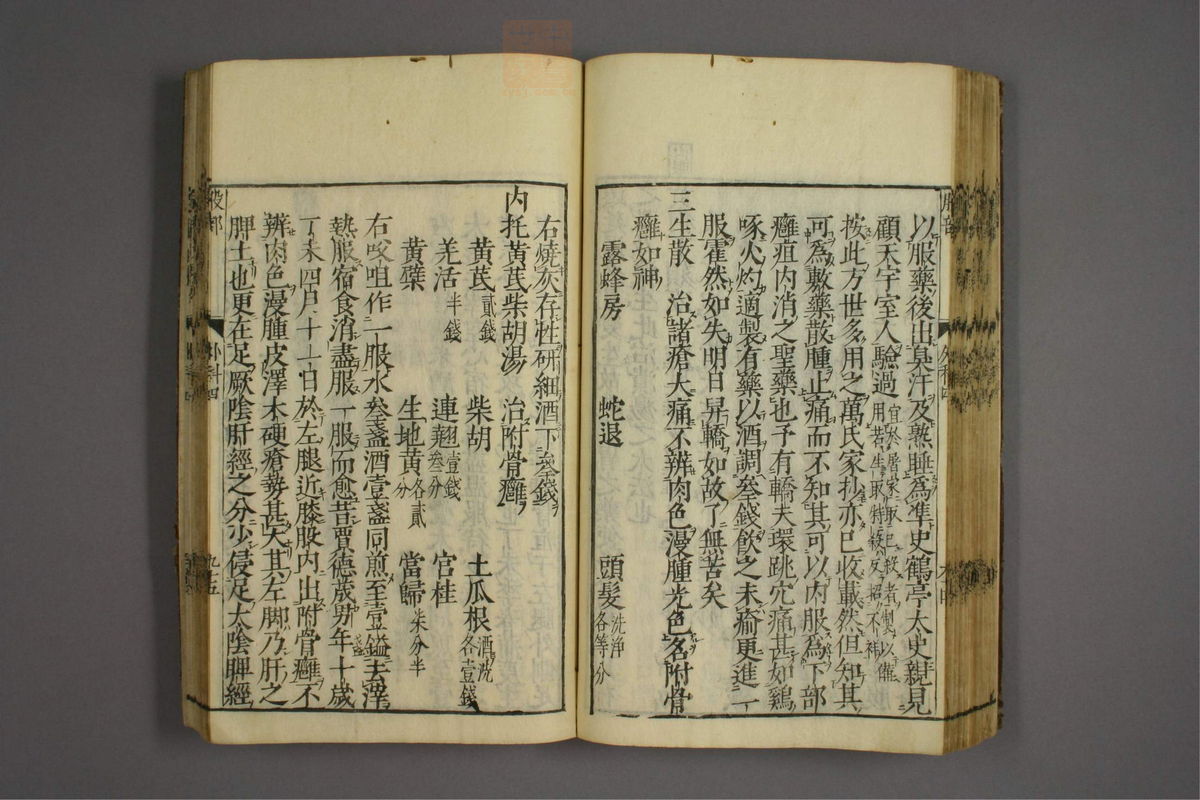 以服藥後出臭汗及熟睡為準史鶴亭太史親見
顧天宇室人驗過宜於屠家取已殺者製以備
用若生取特殺反招不祥
按此方世多用之萬氏家抄亦已收載然但知其
可為敷藥散腫止痛而不知其可以內服為下部
癰疽內消之聖藥也予有轎夫環跳穴痛甚如鷄
啄火灼適製有藥以酒調叄錢飲之未痛更進一
服霍然如失明日舁轎如故了無苦矣
三生散 治諸瘡大痛不辨肉色漫腫光色名附骨
癰如神
露蜂房 蛇退 頭髮洗淨各等分
右燒灰存性研細酒下叄錢
內托黃芪柴胡湯 治附骨癰
黃芪貳錢 柴胡 土瓜根酒洗各壹錢
羌活半錢 連翹壹錢叄分 官桂
黃蘗 生地黃各貳分 當歸柒分半
右㕮咀作一服水叄盞酒壹盞同煎至壹盞去滓
熱服宿食消盡服一服而愈昔賈德茂男年十歲
丁未四月十一日於左腿近膝股內出附骨癰不
辨肉色漫腫皮澤木硬瘡勢甚大其左脚乃肝之
脾土也更在足厥陰肝經之分少侵足太陰脾經
股部
外科四
九十五